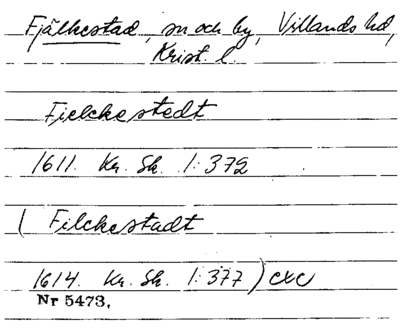 Fjälkestad, sn och by, Villands hd,
Krist. l.
Fielckestedt
1611. Kr. Sk. 1: 372
( Filckestadt
1614. Kr. Sk. 1: 377) exc
Nr 5473.